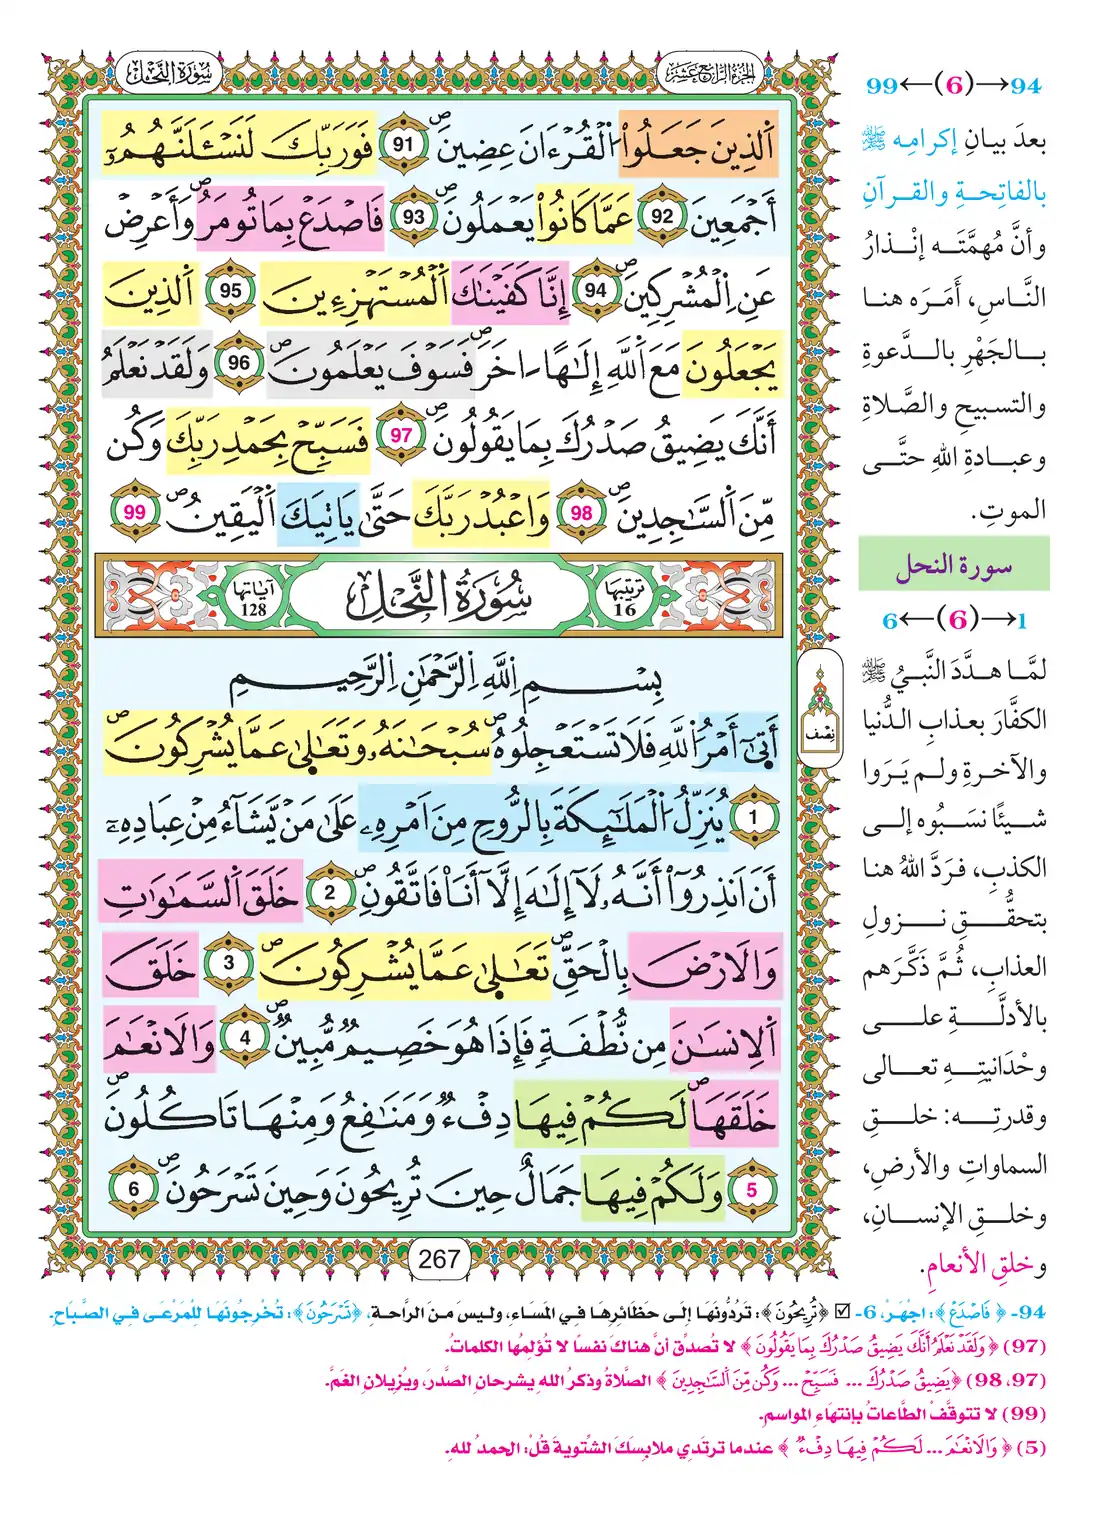 سُورَةُ النَّحْلِ
الجُزْءُ الرَّابِعُ عَشَرَ
اَلذِينَ جَعَلُواْ اُلْقُرْءَانَ عِضِينَ 91 فَوَرَبِّكَ لَنَسْـَٔلَنَّهُمُۥٓ
أَجْمَعِينَ 92 عَمَّا كَانُواْ يَعْمَلُونَ 93 فَاصْدَعْ بِمَا تُومَرُ وَأَعْرِضْ
عَنِ اِلْمُشْرِكِينَ 94 إِنَّا كَفَيْنَٰكَ اَلْمُسْتَهْزِءِينَ 95 اَلذِينَ
يَجْعَلُونَ مَعَ اَللَّهِ إِلَٰهًا ـاخَرَ فَسَوْفَ يَعْلَمُونَ 96 وَلَقَدْ نَعْلَمُ
أَنَّكَ يَضِيقُ صَدْرُكَ بِمَا يَقُولُونَ 97 فَسَبِّحْ بِحَمْدِ رَبِّكَ وَكُن
مِّنَ اَلسَّٰجِدِينَ 98 وَاعْبُدْ رَبَّكَ حَتَّىٰ يَاتِيَكَ اَلْيَقِينُ 99
تَرتيبُها 16 سُورَةُ النَّحْلِ آيَاتُها 128
بِسْمِ اِللَّهِ اِلرَّحْمَٰنِ اِلرَّحِيمِ
أَتَىٰٓ أَمْرُ اُللَّهِ فَلَا تَسْتَعْجِلُوهُ سُبْحَٰنَهُۥ وَتَعَٰلَىٰ عَمَّا يُشْرِكُونَ
1 يُنَزِّلُ اُلْمَلَٰٓئِكَةَ بِالرُّوحِ مِنَ اَمْرِهِۦ عَلَىٰ مَنْ يَّشَآءُ مِنْ عِبَادِهِۦٓ
أَنَ اَنذِرُوٓاْ أَنَّهُۥ لَآ إِلَٰهَ إِلَّآ أَنَا فَاتَّقُونِ 2 خَلَقَ اَلسَّمَٰوَٰتِ
وَالَارْضَ بِالْحَقِّ تَعَٰلَىٰ عَمَّا يُشْرِكُونَ 3 خَلَقَ
اَلِانسَٰنَ مِن نُّطْفَةٍ فَإِذَا هُوَ خَصِيمٌ مُّبِينٌ 4 وَالَانْعَٰمَ
خَلَقَهَا لَكُمْ فِيهَا دِفْءٌ وَمَنَٰفِعُ وَمِنْهَا تَاكُلُونَ
5 وَلَكُمْ فِيهَا جَمَالٌ حِينَ تُرِيحُونَ وَحِينَ تَسْرَحُونَ 6
نصف
267
94→(6)←99
بعدَ بيانِ إكرامِه ﷺ
بالفاتِحةِ والقرآنِ
وأنَّ مُهمَّتَه إنْذارُ
النَّاسِ، أمَرَه هنا
بالجَهْرِ بالدَّعوةِ
والتسبيحِ والصَّلاةِ
وعبادةِ اللهِ حتَّى
الموتِ.
سورة النحل
1→(6)←6
لمَّا هدَّدَ النَّبيُّ ﷺ
الكفَّارَ بعذابِ الدُّنيا
والآخرةِ ولم يَرَوا
شيئًا نسَبُوه إلى
الكذبِ، فردَّ اللهُ هنا
بتحقُّقِ نزولِ
العذابِ، ثُمَّ ذَكَّرَهم
بالأدلَّةِ على
وحْدَانيتِهِ تعالى
وقدرتِه: خلقِ
السماواتِ والأرضِ،
وخلقِ الإنسانِ،
وخلقِ الأنعامِ.
94- ﴿فَاصْدَعْ﴾: اجْهَرْ، 6- ☑ ﴿تُرِيحُونَ﴾: تَرُدُّونَهَا إلى حَظَائِرِهَا في المَسَاءِ، وليسَ منَ الرَّاحةِ، ﴿تَسْرَحُونَ﴾: تُخْرِجُونَهَا لِلْمَرْعَى في الصَّبَاحِ.
(97) ﴿وَلَقَدْ نَعْلَمُ أَنَّكَ يَضِيقُ صَدْرُكَ بِمَا يَقُولُونَ﴾ لا تُصدِّق أنَّ هناكَ نفسًا لا تُؤلِمُها الكلماتُ.
(97، 98) ﴿يَضِيقُ صَدْرُكَ ... فَسَبِّحْ ... وَكُن مِّنَ اَلسَّٰجِدِينَ﴾ الصَّلاةُ وذكرُ اللهِ يشرحانِ الصَّدرَ، ويُزيلانِ الغَمَّ.
(99) لا تتوقَّفْ الطَّاعاتُ بإنتهَاءِ المواسمِ.
(5) ﴿وَالَانْعَٰمَ ... لَكُمْ فِيهَا دِفْءٌ﴾ عندما ترتَدي ملابِسَكَ الشَّتويةَ قُلْ: الحمدُ للهِ.